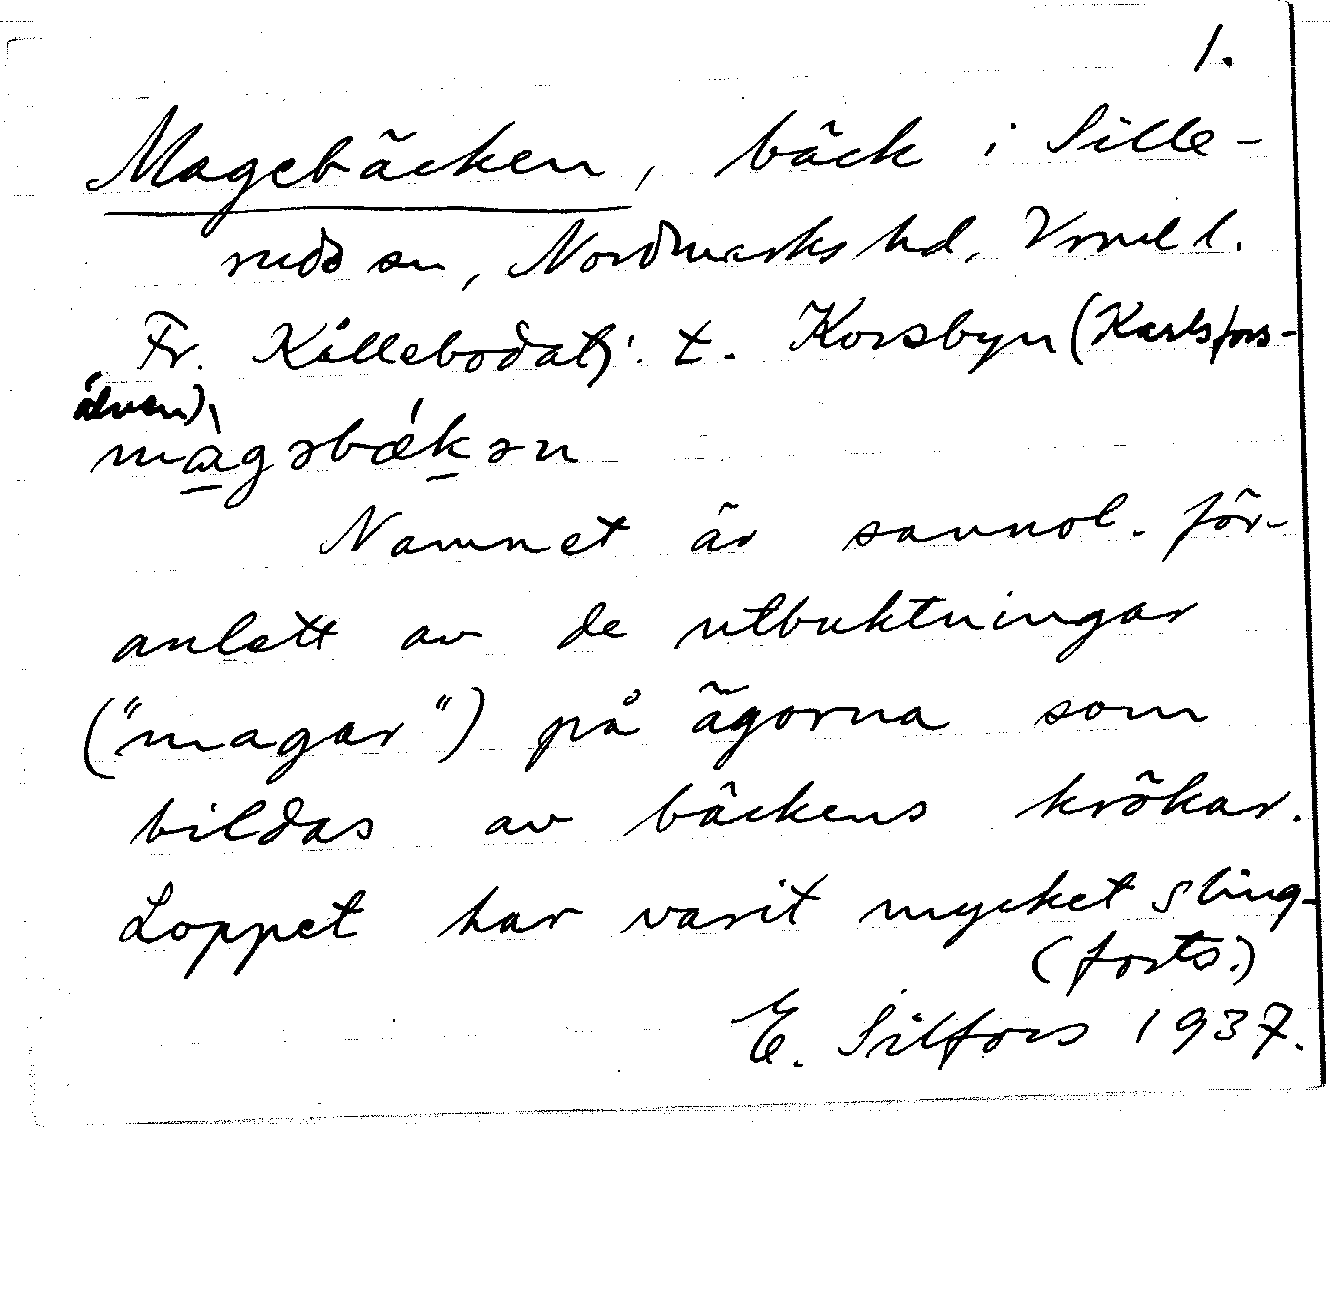 1.
Magebäcken, bäck i Sille-
ruds sn, Nordmarks hd, Vrml l.
Fr. Kållebodatj. t. Korsbyn (Karlsfors-
älven).
màgəbǽkən
Namnet är sannol. för-
anlett av de utbuktningar
("magar") på ägorna som
bildas av bäckens krökar.
Loppet har varit mycket sling-
(forts.)
E. Silfors 1937.